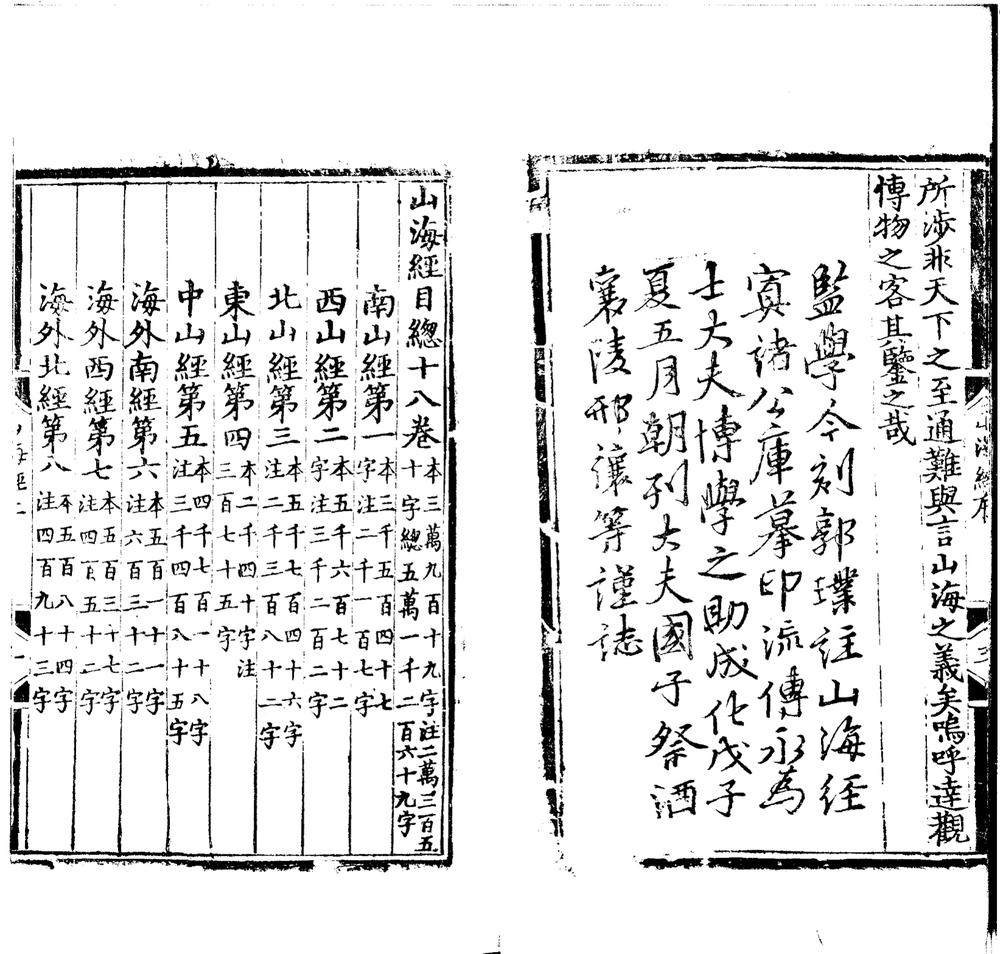 所涉非天下之至通難與言山海之義矣嗚呼達觀
博物之客其鑒之哉
監學今刻郭璞註山海經
寘諸公庫摹印流傳永為
士大夫博學之助成化戊子
夏五月朝列大夫國子祭酒
襄陵邢讓等謹誌
山海經目總十八卷本三萬九百十九字注二萬三百五
十字總五萬一千二百六十九字
南山經第一本三千五百四十七
字注二千一百七字
西山經第二本五千六百七十二
字注三千二百二字
北山經第三本五千七百四十六字
注二千三百八十二字
東山經第四本二千四十字注
三百七十五字
中山經第五本四千七百一十八字
注三千四百八十五字
海外南經第六本五百一十一字
注六百三十二字
海外西經第七本五百三十七字
注四百五十二字
海外北經第八本五百八十四字
注四百九十三字
山海經序
三